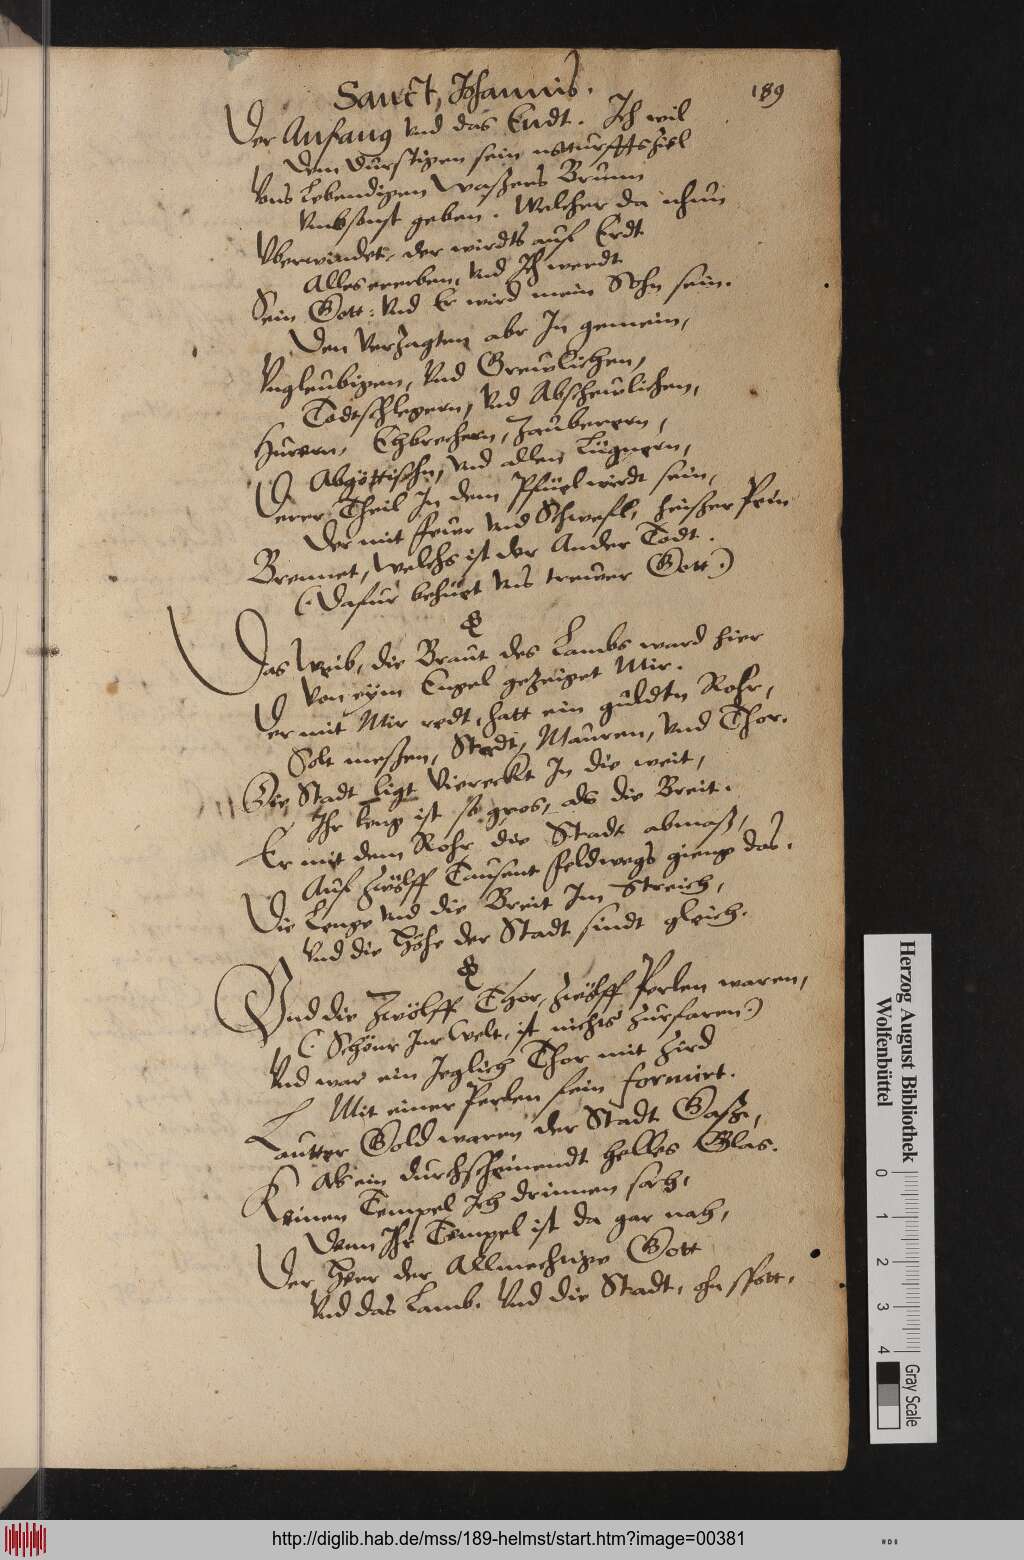 Sanct, Johannis.
189
Der Anfang vnd das Endt. Ich wil
Dem Dürstigen sein notturfftsziel
Vns Lebendigen Waßers Brunn
Vmbsonst geben. Welcher da nhun
Vberwindet, der wirdts auf Erdt
Alles ererben, vnd Ich werdt
Sein Gott: vnd Er wird mein Sohn sein.
Den Verzagten abr In gemein,
Vngleubigen, vnd Grewlichen,
Todtschlegern, vnd Abschewlichen,
Hurern, Ehbrechern, Zauberern,
Abgöttischn, vnd allen Lügnern,
Derer Theil In dem Pfuel wirdt sein,
Der mit fewr vnd Schwefl, heißer Pein
Brennet, welchs ist der Ander Todt.
(. Dafür behüet vns trewer Gott .)
Das Weib, die Braut des Lambs ward hier
Von eym Engel gezeiget Mir.
Der mit Mir redt, hatt ein güldtn Rohr,
Solt meßen, Stedt, Mauren, vnd Thor.
Die Stadt ligt viereckt In die weit,
Ihr leng ist so gros, als die Breit.
Er mit dem Rohr die Stadt abmaß,
Auf zwölff Tausent feldwegs gieng das.
Die Lenge vnd die Breit Im Streich,
Vnd die Höhe der Stadt sindt gleich.
Vnd die zwölff Thor, zwölff Perlen waren,
(. Schöner Inr Welt, ist nichts zurfaren .)
Vnd war ein Jeglich Thor mit zird
Mit einer Perlen fein formirt.
Lautter Gold waren der Stadt Gaß,
Als ein durchscheinendt helles Glas.
Keinen Tempel Ich drinnen sach,
Denn Ihr Tempel ist da gar nah,
Der Herr der Allmechtige Gott
Vnd das Lamb. Vnd die Stadt, ohn spott,
Herzog August Bibliothek
Wolfenbüttel
0 1 2 3 4
Gray Scale
http://diglib.hab.de/mss/189-helmst/start.htm?image=00381